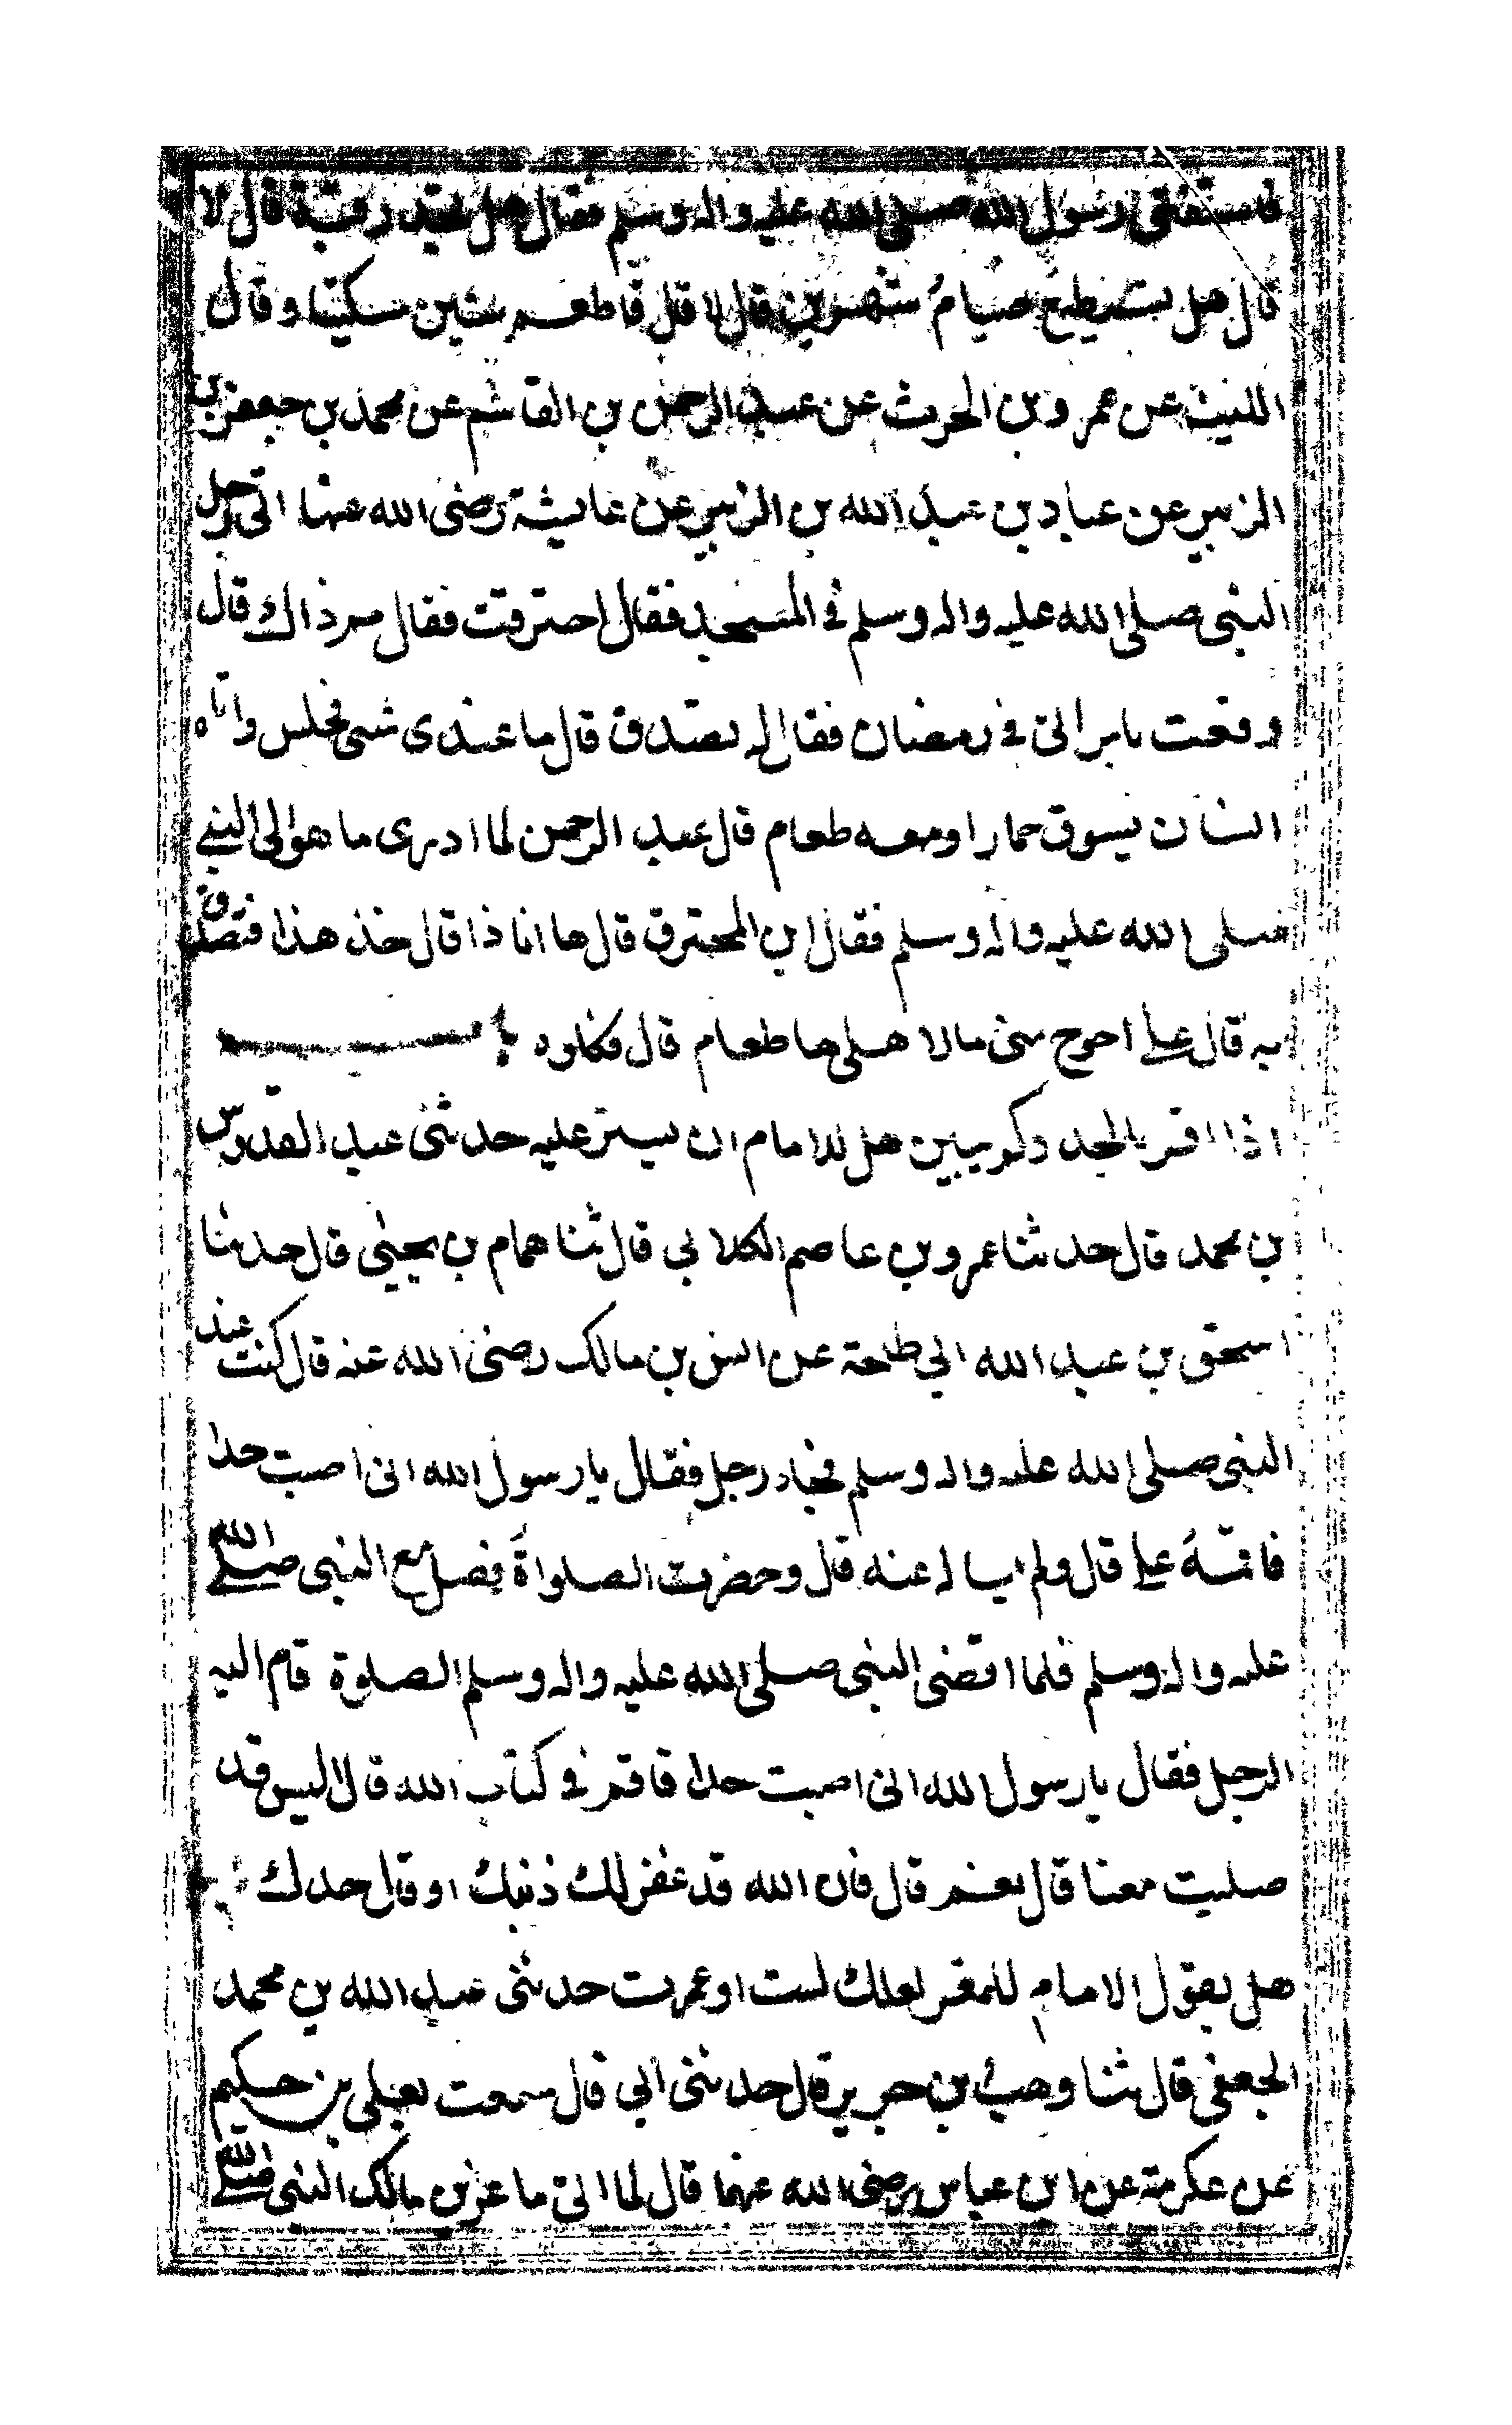 فاستفتى رسول الله صلى الله عليه واله وسلم فقال هل تجد رقبة قال لا
قال هل تستطيع صيام شهرين قال لا قال فاطعم ستين مسكينا وقال
الليث عن عمرو بن الحرث عن عبد الرحمن بن القاسم عن محمد بن جعفر بن
الزبير عن عباد بن عبد الله بن الزبير عن عايشة رضى الله عنها اتى رجل
النبى صلى الله عليه واله وسلم فى المسجد فقال احترقت فقال مم ذاك قال
وقعت بامراتى فى رمضان فقال له تصدق قال ما عندى شى فجلس واتاه
انسان يسوق حمارا ومعه طعام قال عبد الرحمن لما ادرى ما هو الى النبى
صلى الله عليه واله وسلم فقال اين المحترق قال ها انا ذا قال خذ هذا فتصدق
به قال على احوج منى ما لاهلى ها طعام قال فكلوه باب
اذا اقر بالحد ولم يبين هل للامام ان يستر عليه حدثنى عبد القدوس
بن محمد قال حدثنا عمرو بن عاصم الكلابى قال ثنا همام بن يحيى قال حدثنا
اسحق بن عبد الله ابي طلحة عن انس بن مالك رضى الله عنه قال كنت عند
النبى صلى الله عليه واله وسلم فجاء رجل فقال يا رسول الله انى اصبت حدا
فاقمه على قال ولم يساله عنه قال وحضرت الصلواة فصل مع النبى صلى الله
عليه واله وسلم فلما اقضى النبى صلى الله عليه واله وسلم الصلوة قام اليه
الرجل فقال يا رسول الله انى اصبت حدا فاقم فى كتاب الله قال اليس قد
صليت معنا قال نعم قال فان الله قد غفر لك ذنبك او قال حدك
هل يقول الامام للمقر لعلك لمست او غمزت حدثنى عبد الله بن محمد
الجعفى قال ثنا وهب بن جرير قال حدثنى ابى قال سمعت يعلى بن حكيم
عن عكرمة عن ابن عباس رضى الله عنهما قال لما اتى ماعز بن مالك النبى صلى الله